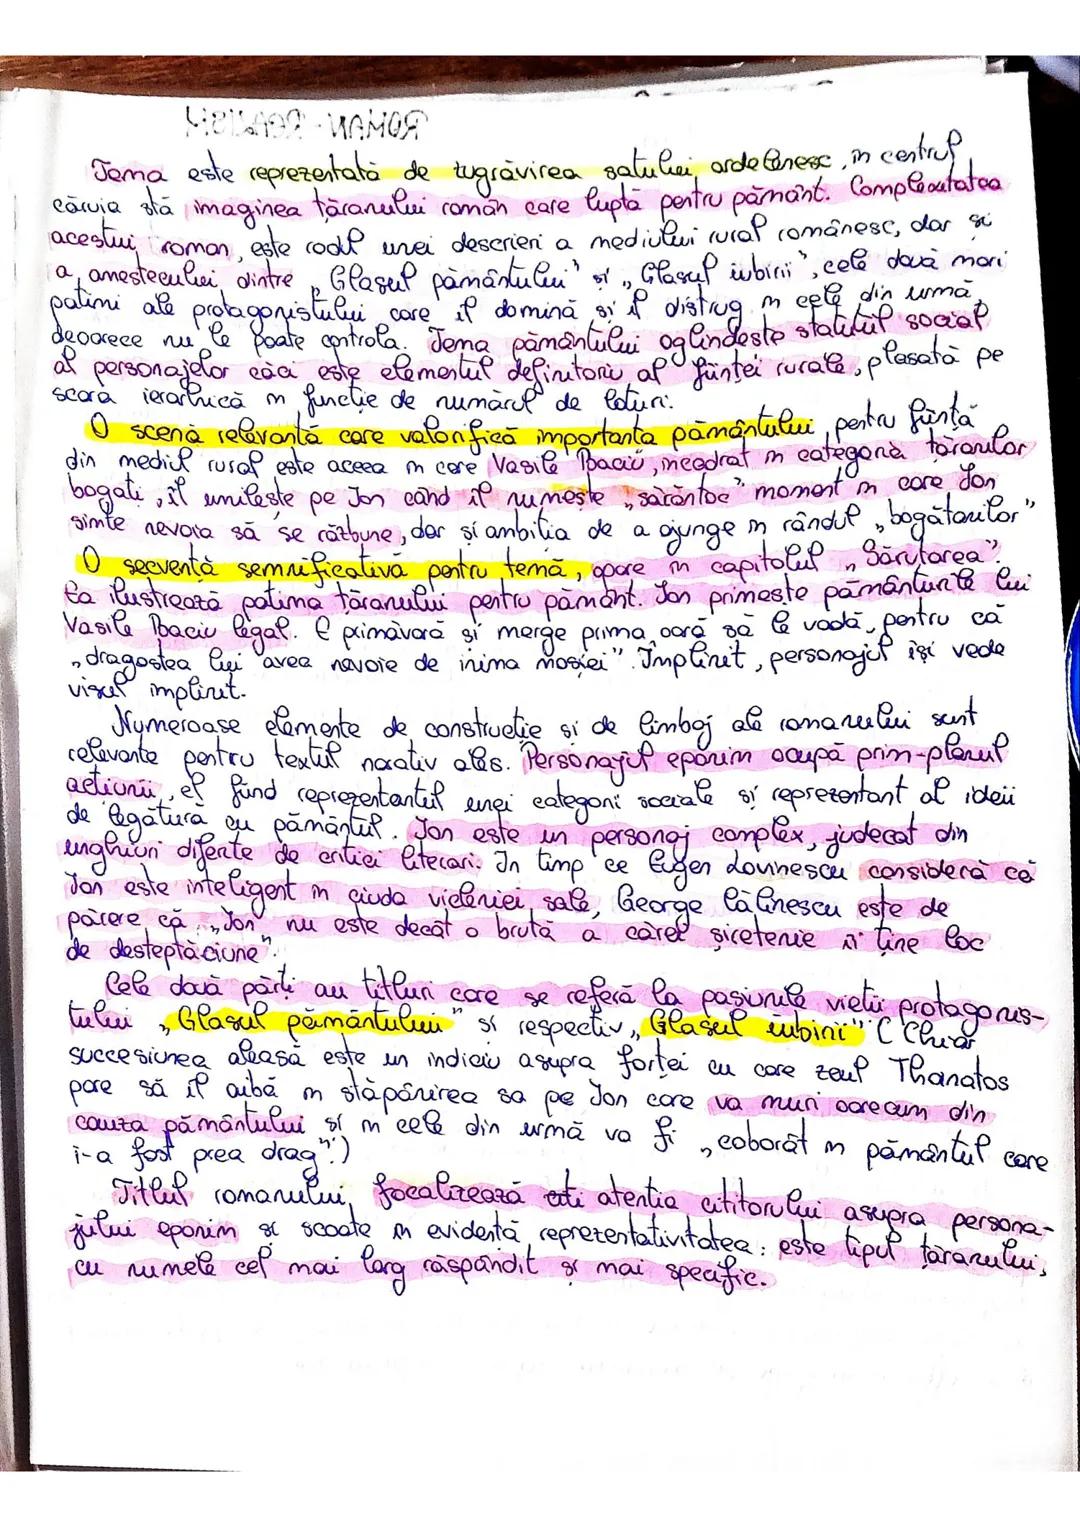 Tema este reprezentată de zugrăvirea satului ardelenesc, în centrul
căruia stă imaginea țăranului român care luptă pentru pământ. Complexitatea
acestui roman, este rodul unei descrieri a mediului rural românesc, dar și
a amestecului dintre „Glasul pământului" și „Glasul iubirii", cele două mari
patimi ale protagonistului care îl domină și îl distrug în cele din urmă,
deoarece nu le poate controla. Tema pământului oglindește statutul social
al personajelor căci este elementul definitoriu al ființei rurale, plasată pe
scara ierarhică în funcție de numărul de loturi.
O scenă relevantă care valorifică importanța pământului, pentru ființa
din mediul rural este aceea în care Vasile Baciu, încadrat în categoria țăranilor
bogați, îl umilește pe Ion când îl numește „sărăntoc" moment în care Ion
simte nevoia să se răzbune, dar și ambiția de a ajunge în rândul „bogătanilor"
O secvență semnificativă pentru temă, apare în capitolul „Sărutarea".
Ea ilustrează patima țăranului pentru pământ. Ion primește pământurile lui
Vasile Baciu legal. E primăvară și merge prima oară să le vadă, pentru că
„dragostea lui avea nevoie de inima moșiei". Împlinit, personajul își vede
visul împlinit.
Numeroase elemente de construcție și de limbaj ale romanului sunt
relevante pentru textul narativ ales. Personajul eponim ocupă prim-planul
acțiunii, el fiind reprezentantul unei categorii sociale și reprezentant al ideii
de legătură cu pământul. Ion este un personaj complex, judecat din
unghiuri diferite de critici literari. În timp ce Eugen Lovinescu consideră că
Ion este inteligent în ciuda vicleniei sale, George Călinescu este de
părere că „Ion nu este decât o brută a cărei șiretenie îi ține loc
de deșteptăciune".
Cele două părți au titluri care se referă la pasiunile vieții protagonis-
tului „Glasul pământului" și respectiv „Glasul iubirii". (Chiar
succesiunea aleasă este un indiciu asupra forței cu care zeul Thanatos
pare să îl aibă în stăpânirea sa pe Ion care va muri oarecum din
cauza pământului și în cele din urmă va fi „coborât în pământul care
i-a fost prea drag".)
Titlul romanului, focalizează atenția cititorului asupra persona-
jului eponim și scoate în evidență reprezentativitatea: este tipul țăranului,
cu numele cel mai larg răspândit și mai specific.